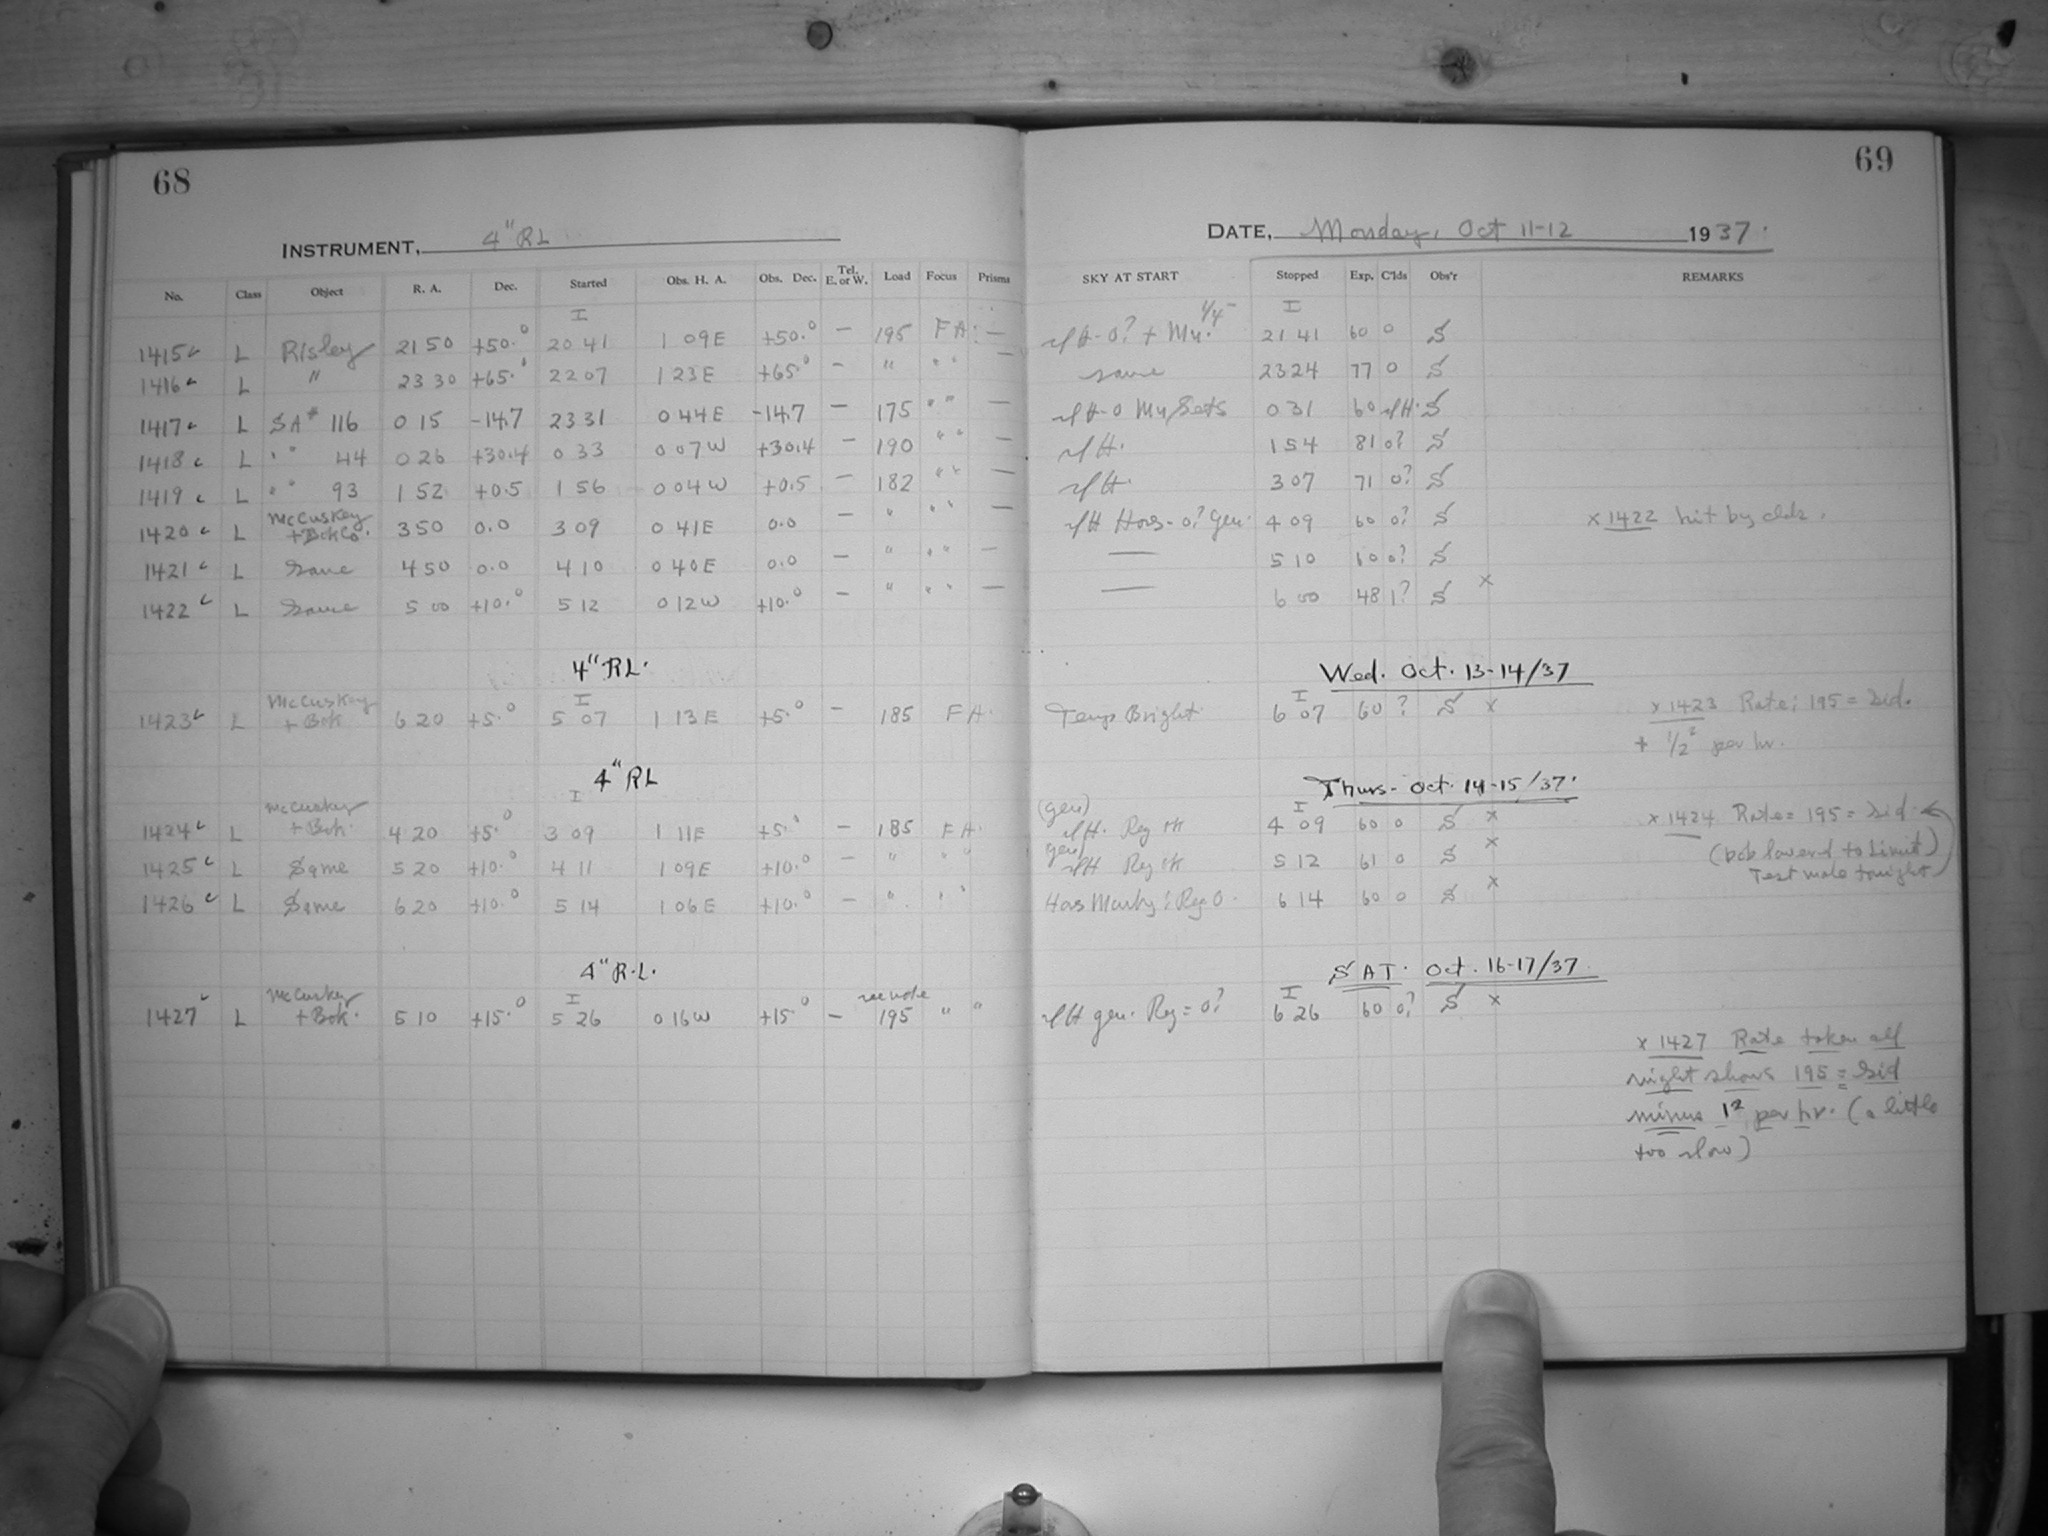 68
INSTRUMENT, 4" RL
No. Class Object R. A. Dec. Started Obs. H. A. Obs. Dec. Tel. E. or W. Load Focus Prisms
I
1415 L Risley 21 50 +50.° 20 41 1 09E +50.° — 195 FA. —
1416 L " 23 30 +65.° 22 07 1 23E +65.° — " " " —
1417 L SA# 116 0 15 -14.7 23 31 0 44E -14.7 — 175 " " —
1418 L " " 44 0 26 +30.4 0 33 0 07W +30.4 — 190 " " —
1419 L " " 93 1 52 +0.5 1 56 0 04W +0.5 — 182 " " —
1420 L McCuskey + Bok Co. 3 50 0.0 3 09 0 41E 0.0 — " " " —
1421 L Same 4 50 0.0 4 10 0 40E 0.0 — " " " —
1422 L Same 5 00 +10.° 5 12 0 12W +10.° — " " " —
4" RL.
I
1423 L McCuskey + Bok 6 20 +5.° 5 07 1 13E +5.° — 185 FA.
4" RL
I
1424 L McCuskey + Bok. 4 20 +5.° 3 09 1 11E +5.° — 185 FA.
1425 L Same 5 20 +10.° 4 11 1 09E +10.° — " " "
1426 L Same 6 20 +10.° 5 14 1 06E +10.° — " " "
4" R.L.
I see note
1427 L McCuskey + Bok. 5 10 +15.° 5 26 0 16W +15.° — 195 " "
69
DATE, Monday, Oct 11-12 1937.
SKY AT START Stopped Exp. C'lds Obs'r REMARKS
I
21 41 60 0 S
same 23 24 77 0 S
0 31 60 S
1 54 81 0? S
3 07 71 0? S
4 09 60 0? S x 1422 hit by clds.
— 5 10 60 0? S
— 6 00 48 1? S x
Wed. Oct. 13-14/37
I
Temp Bright. 6 07 60 ? S x x 1423 Rate; 195 = Sid.
+ 1/2ˢ per hr.
Thurs. Oct. 14-15/37.
(gen) I
4 09 60 0 S x x 1424 Rate = 195 = Sid.
gen 5 12 61 0 S x (bob lowered to Limit)
Test made tonight
6 14 60 0 S x
SAT. Oct. 16-17/37
I
gen. Reg = 0? 6 26 60 0? S x
x 1427 Rate taken all
night shows 195 = Sid
minus 1ˢ per hr. (a little
too slow)